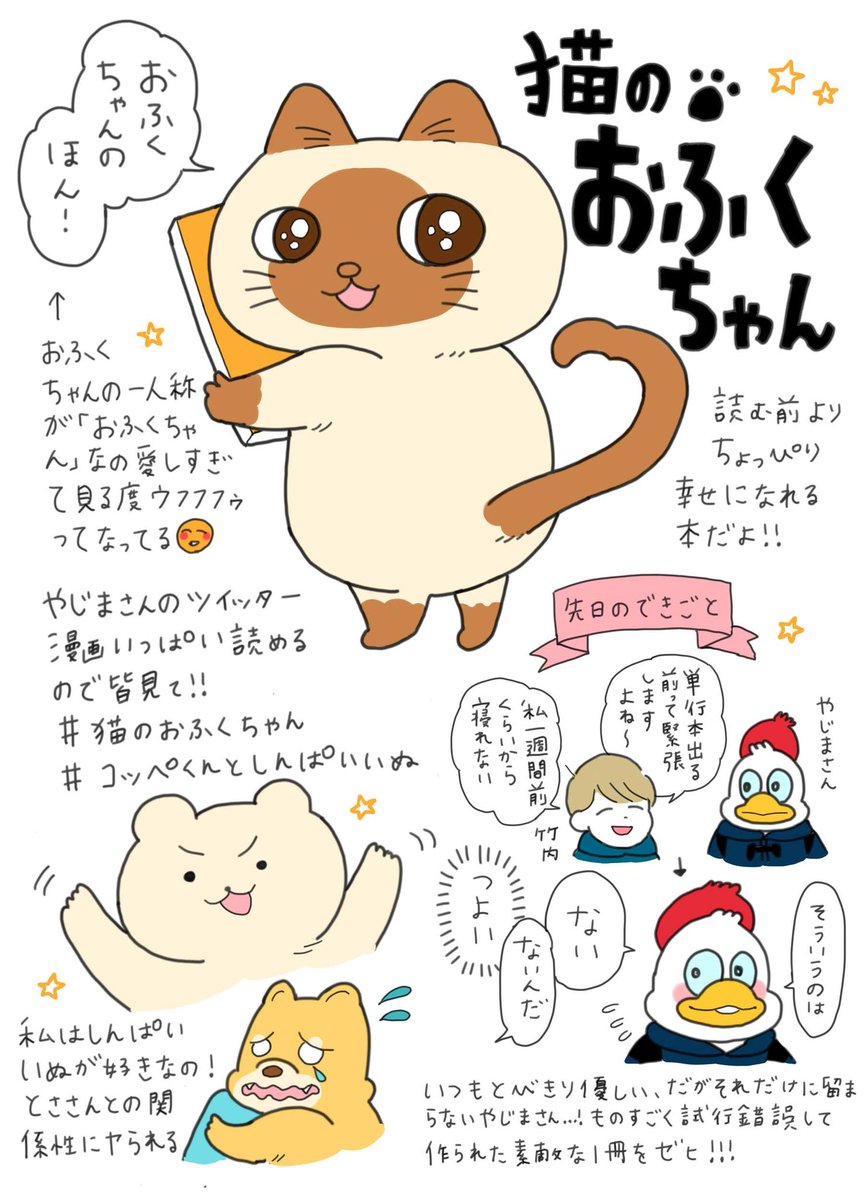 猫の
おふく
ちゃん
おふく
ちゃんの
ほん!
↑
おふく
ちゃんの一人称
が「おふくちゃ
ん」なの愛しすぎ
て見る度ウフフフゥ
ってなってる
読む前より
ちょっぴり
幸せになれる
本だよ!!
やじまさんのツイッター
漫画いっぱい読める
ので皆見て!!
#猫のおふくちゃん
#コッペくんとしんぱいいぬ
先日のできごと
やじまさん
単行本出る
前って緊張
します
よね〜
私一週間前
くらいから
寝れない
竹内
↓
そういうのは
ない
ないんだ
つよい
私はしんぱい
いぬが好きなの!
とささんとの関
係性にヤられる
いつもとびきり優しい、だがそれだけに留ま
らないやじまさん…!ものすごく試行錯誤して
作られた素敵な1冊をゼヒ!!!